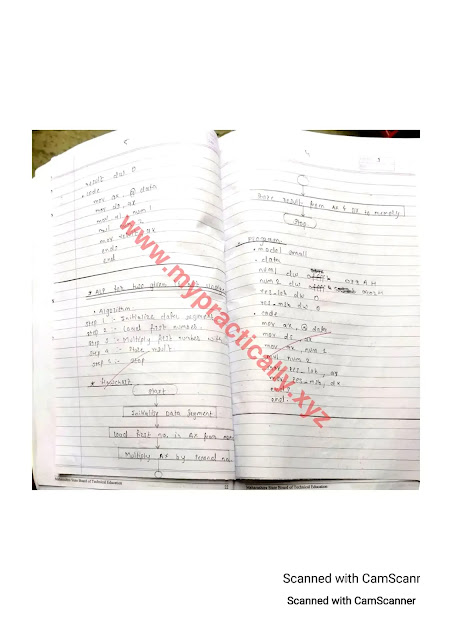 5
result dw 0
. code
mov ax, @ data
mov ds, ax
mov al, num1
mul
mov result, ax
ends
end
* ALP for two given
. Algorithm
Step 1 :- Initialize data segment
Step 2 :- Load first number.
Step 3 :- Multiply first number with
Step 4 :- Store result
Step 5 :- Stop
* Flowchart
Start
Initialize Data Segment
Load first no. in AX from
Multiply AX by second no.
Maharashtra State Board of Technical Education
Store result from AX & DX to memory
Stop
Program
. model small
. data
num1 dw
num2 dw
res_lsb dw 0
res_msb dw 0
. code
mov ax, @ data
mov ds, ax
mov ax, num1
mul num2
mov res_lsb, ax
mov res_msb, dx
ends
end.
Maharashtra State Board of Technical Education
www.mypractically.xyz
Scanned with CamScanr
Scanned with CamScanner